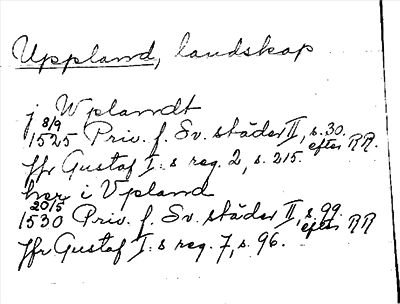 Uppland, landskap
j Wplandt
8/9 1525 Priv. f. Sv. städer II, s. 30. efter RR.
Jfr Gustaf I:s reg. 2, s. 215.
her i Vpland
20/5 1530 Priv. f. Sv. städer II, s. 99 efter RR
Jfr Gustaf I:s reg. 7, s. 96.